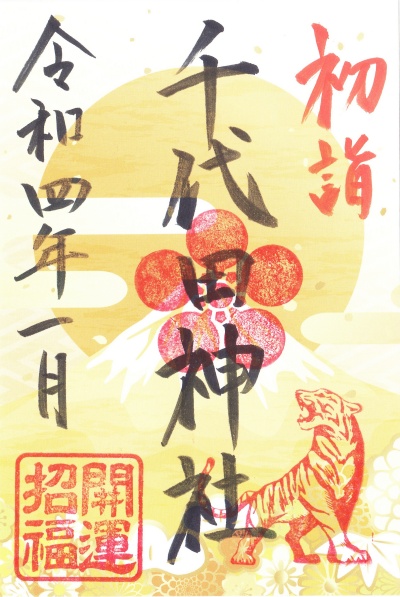 初詣
千代田神社
令和四年一月
開運
招福